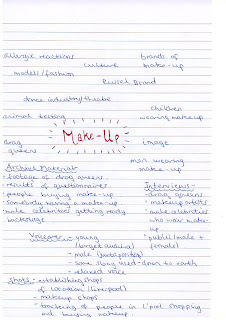 allergic reactions
brands of
culture
make-up
models/fashion
Russel Brand
dance industry/theatre
children
animal testing
wearing make-up
Make-Up
drag
queens
image
men wearing
make-up
Archive Material:
- footage of drag queens
- results of questionnaires
- people buying make-up
- somebody having a make-up
- male celebrities getting ready
backstage
Interviews:
- drag queens
- makeup artists
- male celebrities
who wear make-
up
- public (male +
female)
Voiceover: - young
(target audience)
- male (juxtaposition)
- some slang used - down to earth
- relaxed voice
Shots: - establishing shops
of location (Liverpool)
- makeup shops
- tracking of people in L'pool shopping
and buying makeup.